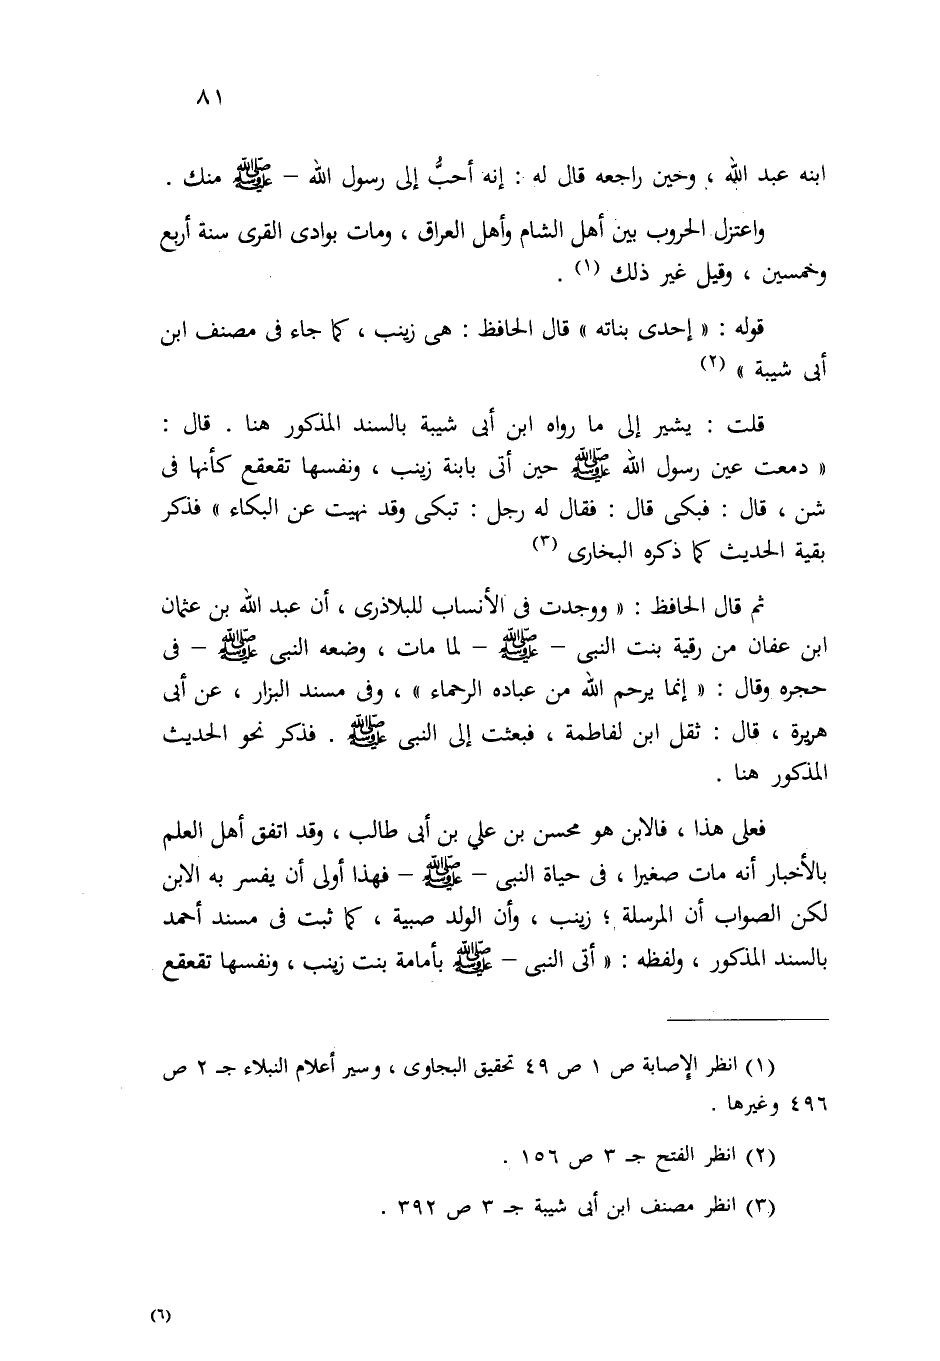 ٨١
ابنه عبد الله ، وحين راجعه قال له : إنه أحبُّ إلى رسول الله – ﷺ منك .
واعتزل الحروب بين أهل الشام وأهل العراق ، ومات بوادى القرى سنة أربع
وخمسين ، وقيل غير ذلك (١) .
قوله : « إحدى بناته » قال الحافظ : هى زينب ، كما جاء فى مصنف ابن
أبى شيبة » (٢)
قلت : يشير إلى ما رواه ابن أبى شيبة بالسند المذكور هنا . قال :
« دمعت عين رسول الله ﷺ حين أتى بابنة زينب ، ونفسها تقعقع كأنها فى
شن ، قال : فبكى قال : فقال له رجل : تبكى وقد نهيت عن البكاء » فذكر
بقية الحديث كما ذكره البخارى (٣)
ثم قال الحافظ : « ووجدت فى الأنساب للبلاذرى ، أن عبد الله بن عثمان
ابن عفان من رقية بنت النبى – ﷺ – لما مات ، وضعه النبى ﷺ – فى
حجره وقال : « إنما يرحم الله من عباده الرحماء » ، وفى مسند البزار ، عن أبى
هريرة ، قال : ثقل ابن لفاطمة ، فبعثت إلى النبى ﷺ . فذكر نحو الحديث
المذكور هنا .
فعلى هذا ، فالابن هو محسن بن علي بن أبى طالب ، وقد اتفق أهل العلم
بالأخبار أنه مات صغيرا ، فى حياة النبى – ﷺ – فهذا أولى أن يفسر به الابن
لكن الصواب أن المرسلة ؛ زينب ، وأن الولد صبية ، كما ثبت فى مسند أحمد
بالسند المذكور ، ولفظه : « أتى النبى – ﷺ بأمامة بنت زينب ، ونفسها تقعقع
(١) انظر الإصابة ص ١ ص ٤٩ تحقيق البجاوى ، وسير أعلام النبلاء جـ ٢ ص
٤٩٦ وغيرها .
(٢) انظر الفتح جـ ٣ ص ١٥٦ .
(٣) انظر مصنف ابن أبى شيبة جـ ٣ ص ٣٩٢ .
(٦)